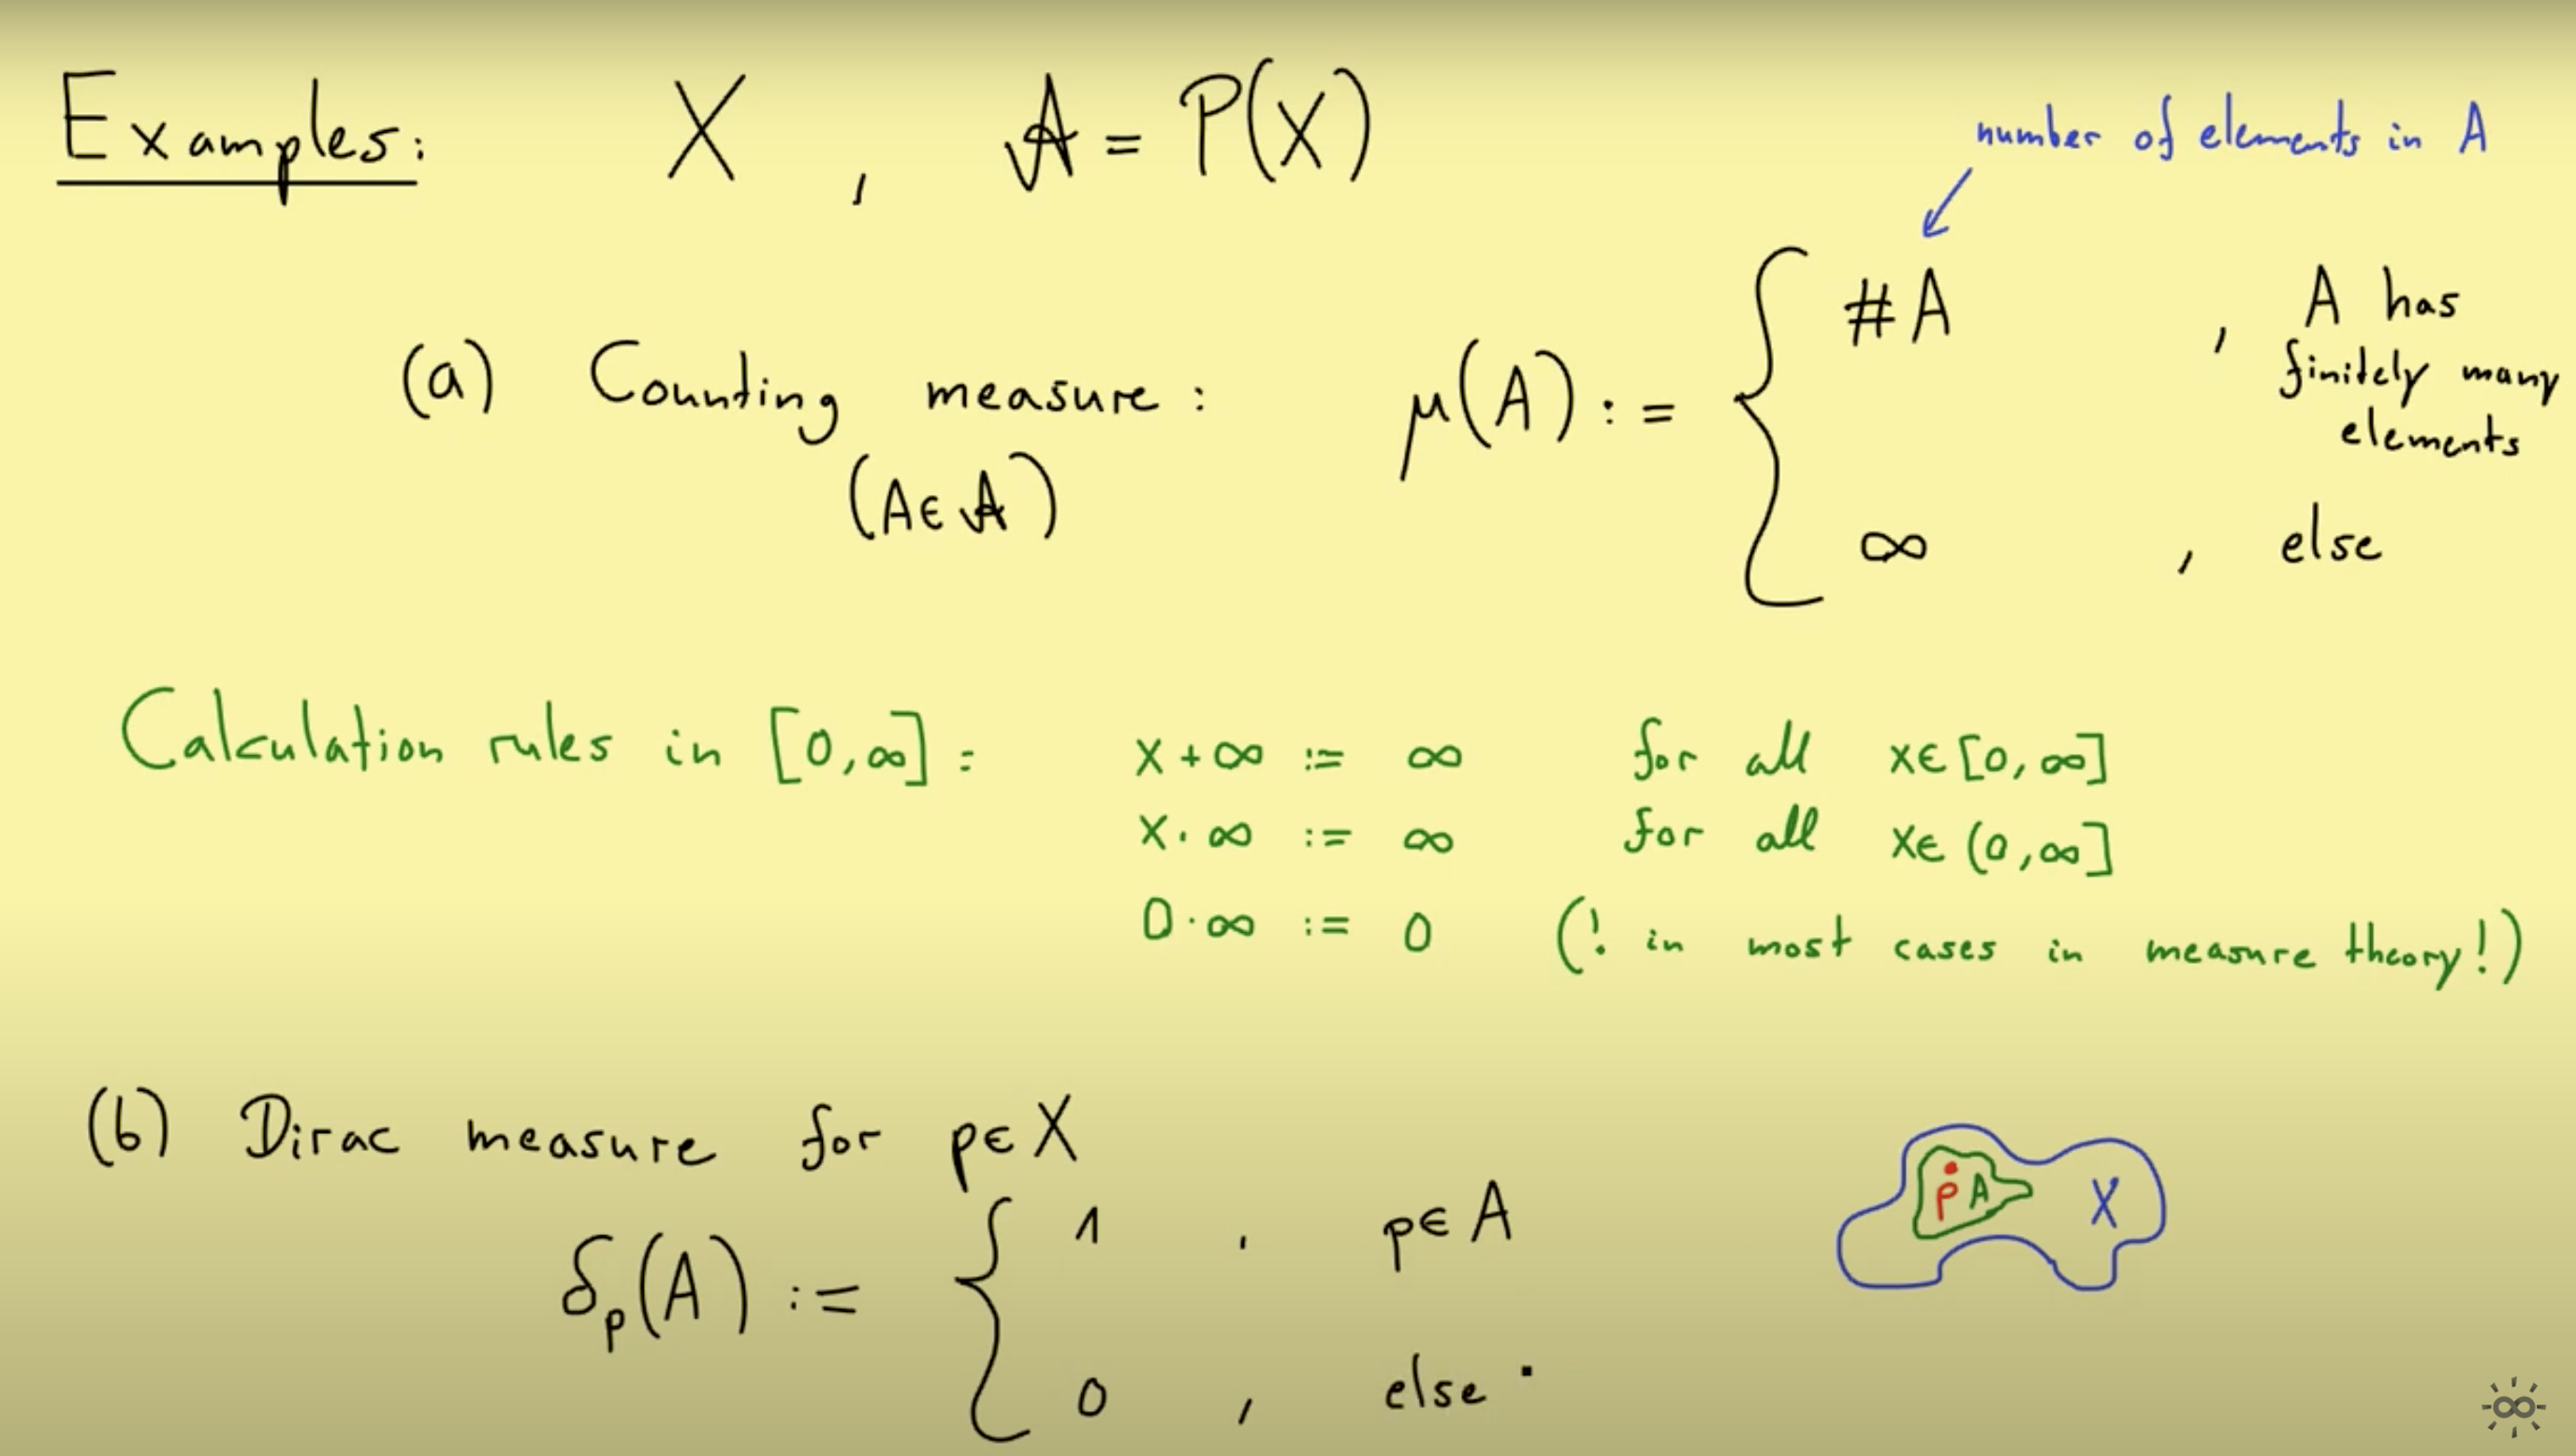 Examples: X , 𝒜 = P(X)
number of elements in A
(a) Counting measure : μ(A) := { #A , A has finitely many elements
(A ∈ 𝒜)
∞ , else
Calculation rules in [0,∞] : x + ∞ := ∞ for all x ∈ [0, ∞]
x · ∞ := ∞ for all x ∈ (0, ∞]
0 · ∞ := 0 (! in most cases in measure theory!)
(b) Dirac measure for p ∈ X
δₚ(A) := { 1 , p ∈ A
0 , else .
p A X